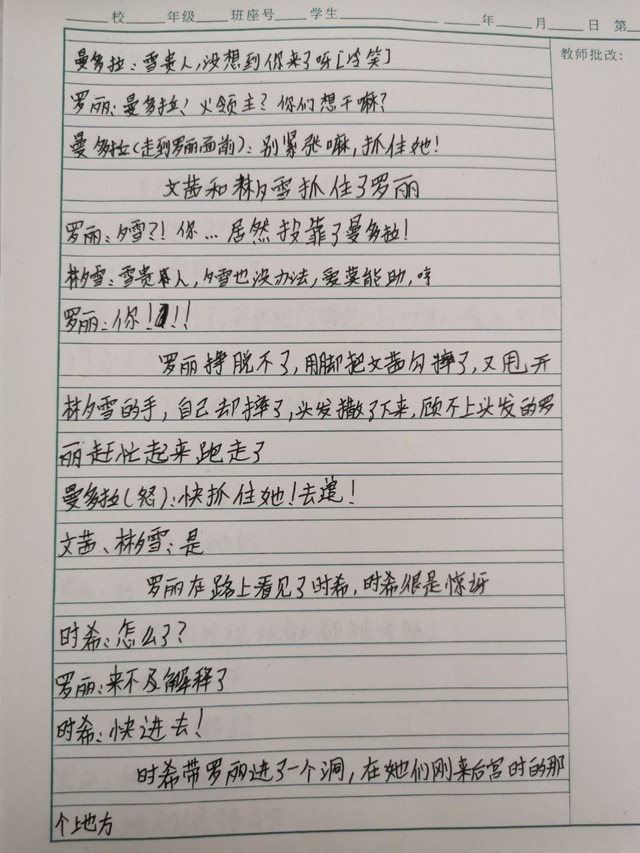 校 年级 班座号 学生 年 月 日 第
教师批改:
曼多拉:雪贵人,没想到你来了呀[冷笑]
罗丽:曼多拉!火领主?你们想干嘛?
曼多拉(走到罗丽面前):别紧张嘛,抓住她!
文茜和林夕雪抓住了罗丽
罗丽:夕雪?!你…居然投靠了曼多拉!
林夕雪:雪贵人,夕雪也没办法,爱莫能助,哼
罗丽:你!!!
罗丽挣脱不了,用脚把文茜勾摔了,又甩开
林夕雪的手,自己却摔了,头发撒了下来,顾不上头发的罗
丽赶忙起来跑走了
曼多拉(怒):快抓住她!去追!
文茜、林夕雪:是
罗丽在路上看见了时希,时希很是惊讶
时希:怎么了?
罗丽:来不及解释了
时希:快进去!
时希带罗丽进了一个洞,在她们刚来后宫时的那
个地方